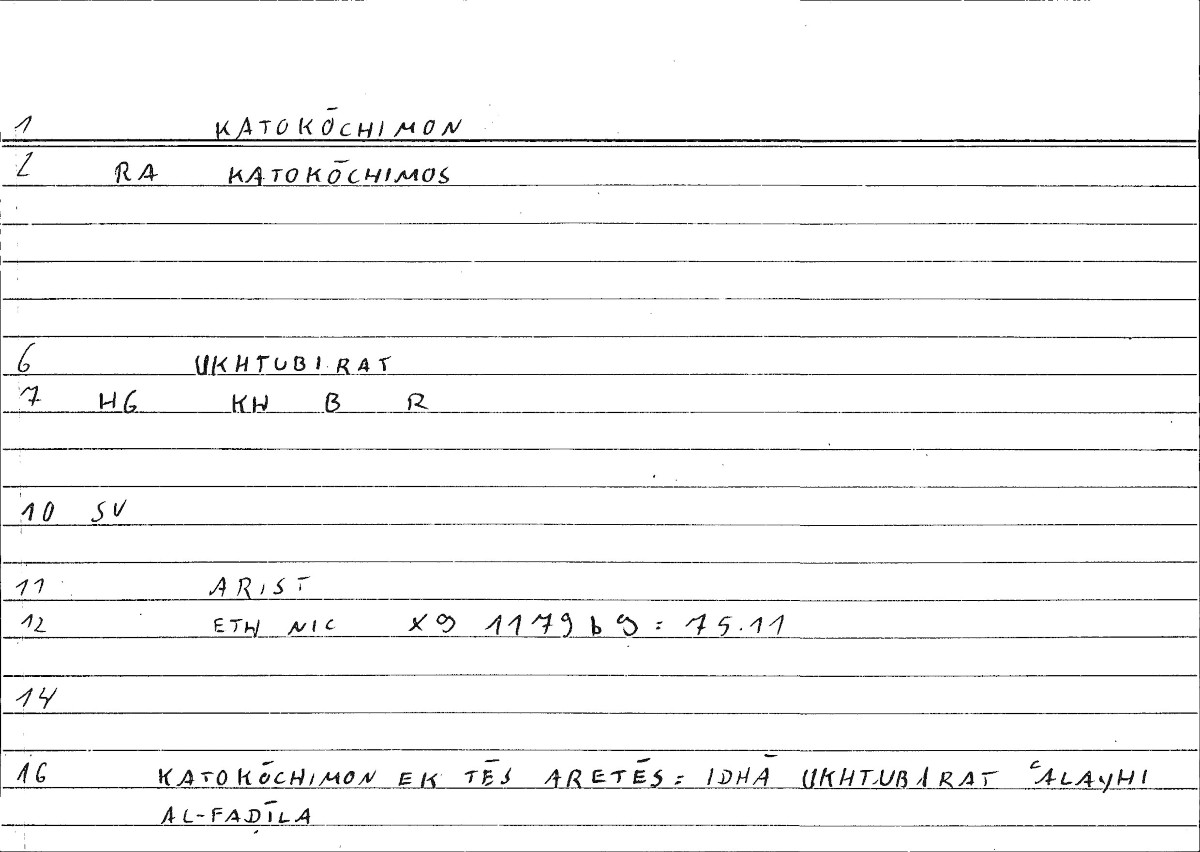 1 KATOKŌCHIMON
2 RA KATOKŌCHIMOS
6 UKHTUBIRAT
7 HG KH B R
10 SV
11 ARIST
12 ETH NIC X9 1179b9 = 75.11
14
16 KATOKŌCHIMON EK TĒS ARETĒS = IDHĀ UKHTUBIRAT ʿALAYHI
AL-FAḌĪLA